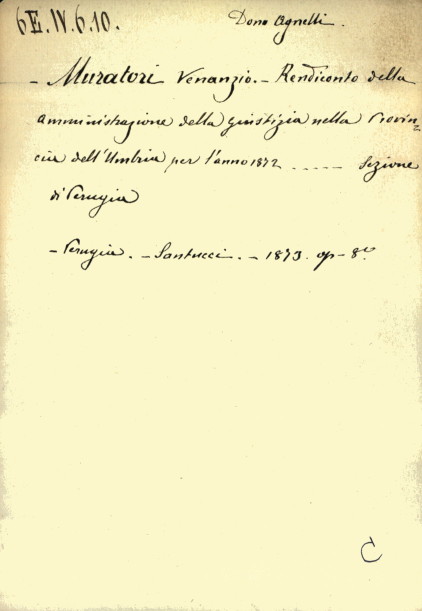 6E.IV.6.10. Dono Agnelli.
- Muratori Venanzio. - Rendiconto della
amministrazione della giustizia nella Provin-
cia dell'Umbria per l'anno 1872 ..... Sezione
di Perugia
- Perugia. - Santucci. - 1873. op - 8º
C